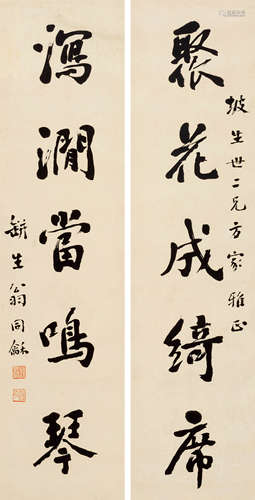 坡生世二兄方家雅正
聚花成綺席
瀉澗當鳴琴
缾生翁同龢